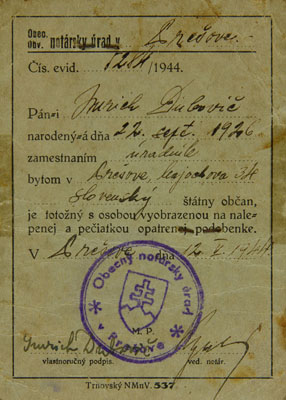 Obec.
Obv. notársky úrad v Prešove.
Čís. evid. /1944.
Pán-i Imrich Dubovič
narodený-á dňa 22. sept. 1926
zamestnaním úradník
bytom v Prešove, 34
Slovenský štátny občan,
je totožný s osobou vyobrazenou na nale-
penej a pečiatkou opatrenej podobenke.
V Prešove dňa 12. I. 1944.
* Obecný notársky úrad * v Prešove
M. P.
Imrich Dubovič
vlastnoručný podpis. ved. notár.
Trnovský NMnV. 537.